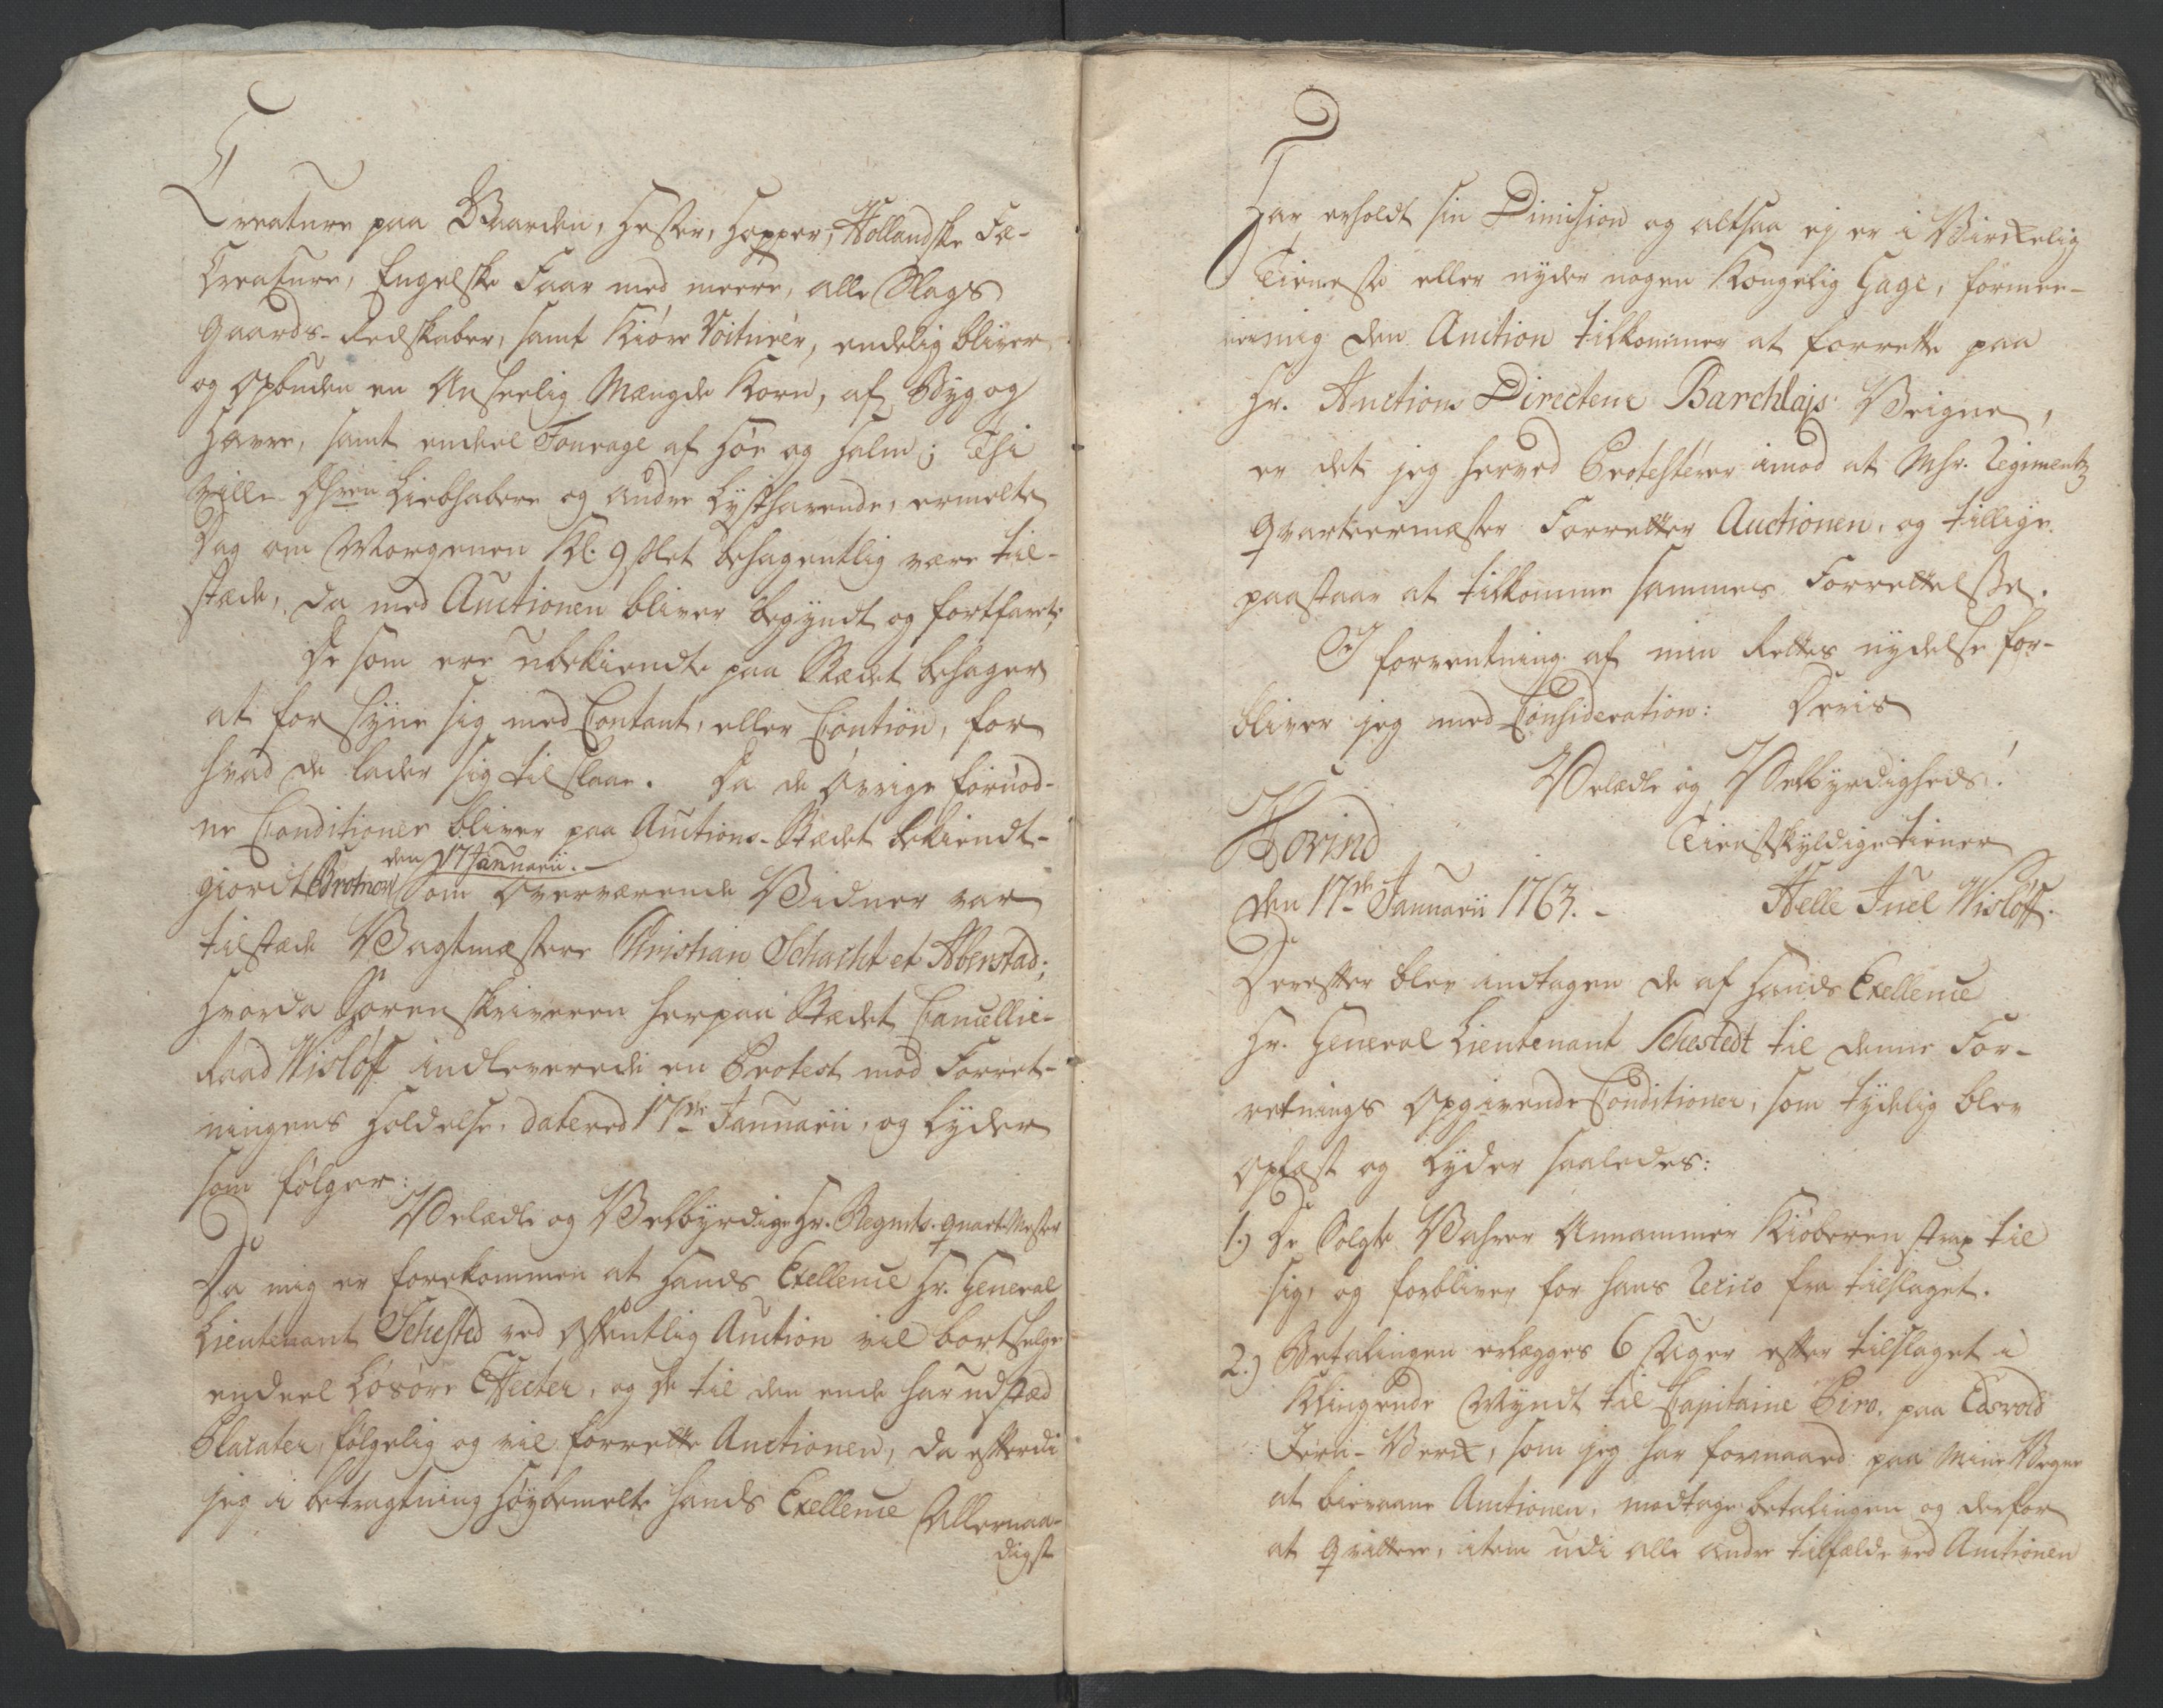 Creature paa Gaarden, Hester, Hopper, Hollandske Fæ-
Creature, Engelske Faar med meere, alle Slags
Gaards-Redskaber, samt Kiøre Voiturér, endelig bliver
og Opbuden en Anseelig Mængde Korn, af Byg og
Havre, samt endeel Fourage af Høe og Halm; Thi
ville Dhrrn Liebhabere og andre Lysthavende, ermelte
Dag om Morgenen Kl. 9 slet behagentlig være til-
stæde, da med Auctionen bliver begyndt og fortfaret;
De som ere ubekiendte paa Stædet behager
at forsyne sig med Contant, eller Caution, for
hvad de lader sig tilslaae. Da de øvrige fornød-
ne Conditioner bliver paa Auctions-Stædet bekiendt-
den 17 Januarii.
giordt Som Overværende Vidner var
tilstæde Vagtmæstere Christian Schacht et Aberstad;
hvorda Sorenskriveren herpaa Stædet Cancellie-
Raad Wisløff indleverede en Protest mod Forret-
ningens Holdelse, datered 17de Januarii, og Lyder
som følger:
Velædle og Velbyrdige Hr. Regmts. Quart. Mester
Da mig er forekommen at Hands Exellence Hr. General
Lieutenant Schested ved offentlig Auction vil bortselge
endeel Løsøre Effecter, og De til den ende har udstæd
Placater, følgelig og vil forrette Auctionen, da efterdi
jeg i betragtning Høybemelte Hands Exellence Allernaa-
digst
Har erholdt sin Dimission og altsaa ej er i Virkelig
Tieneste eller nyder nogen Kongelig Gage, formee-
ner mig den Auction tilkommer at forrette paa
Hr. Auctions Directeur Barchlajs Veigne,
er det jeg herved Protesterer imod at Mhr. Regimentz
Qvarteermæster Forretter Auctionen, og tillige
paastaar at tilkomme sammes Forrettelse.
I forventning af min Rettes nydelse for-
bliver jeg med Consideration: Deris
Velædle og Velbyrdigheds!
Hovind Tienstskyldige tiener
den 17de Januarii 1763. Helle Juel Wisløff.
Derefter blev indtagen de af Hands Exellence
Hr. General Lieutenant Schestedt til denne For-
retnings Opgivende Conditioner, som tydelig blev
Oplæst og Lyder saaledes:
1.) De Solgte Vahrer Annammer Kiøberen strax til
sig, og forbliver for hans Recico fra tilslaget.
2.) Betalingen erlægges 6 Uger efter tilslaget i
Klingende Myndt til Capitaine Piro, paa Edsvold
Jern-Verk, som jeg har formaaed paa Mine Vegne
at bievaane Auctionen, modtage betalingen og derfor
at qvittere, item udi alle andre tilfælde ved Auctionen